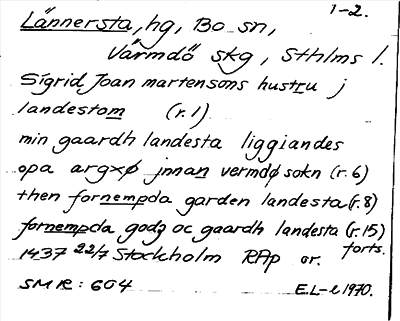 1-2.
Lännersta, hg, Bo sn,
Värmdö skg, Sthlms l.
Sigrid Joan martensons hustru j
landestom (r.1)
min gaardh landesta liggiandes
opa argxø jnnan vermdø sokn (r.6)
then fornempda garden landesta (r.8)
fornempda godz oc gaardh landesta (r.15)
forts.
1437 22/7 Stockholm RAp or.
SMR: 604
E.L-l 1970.